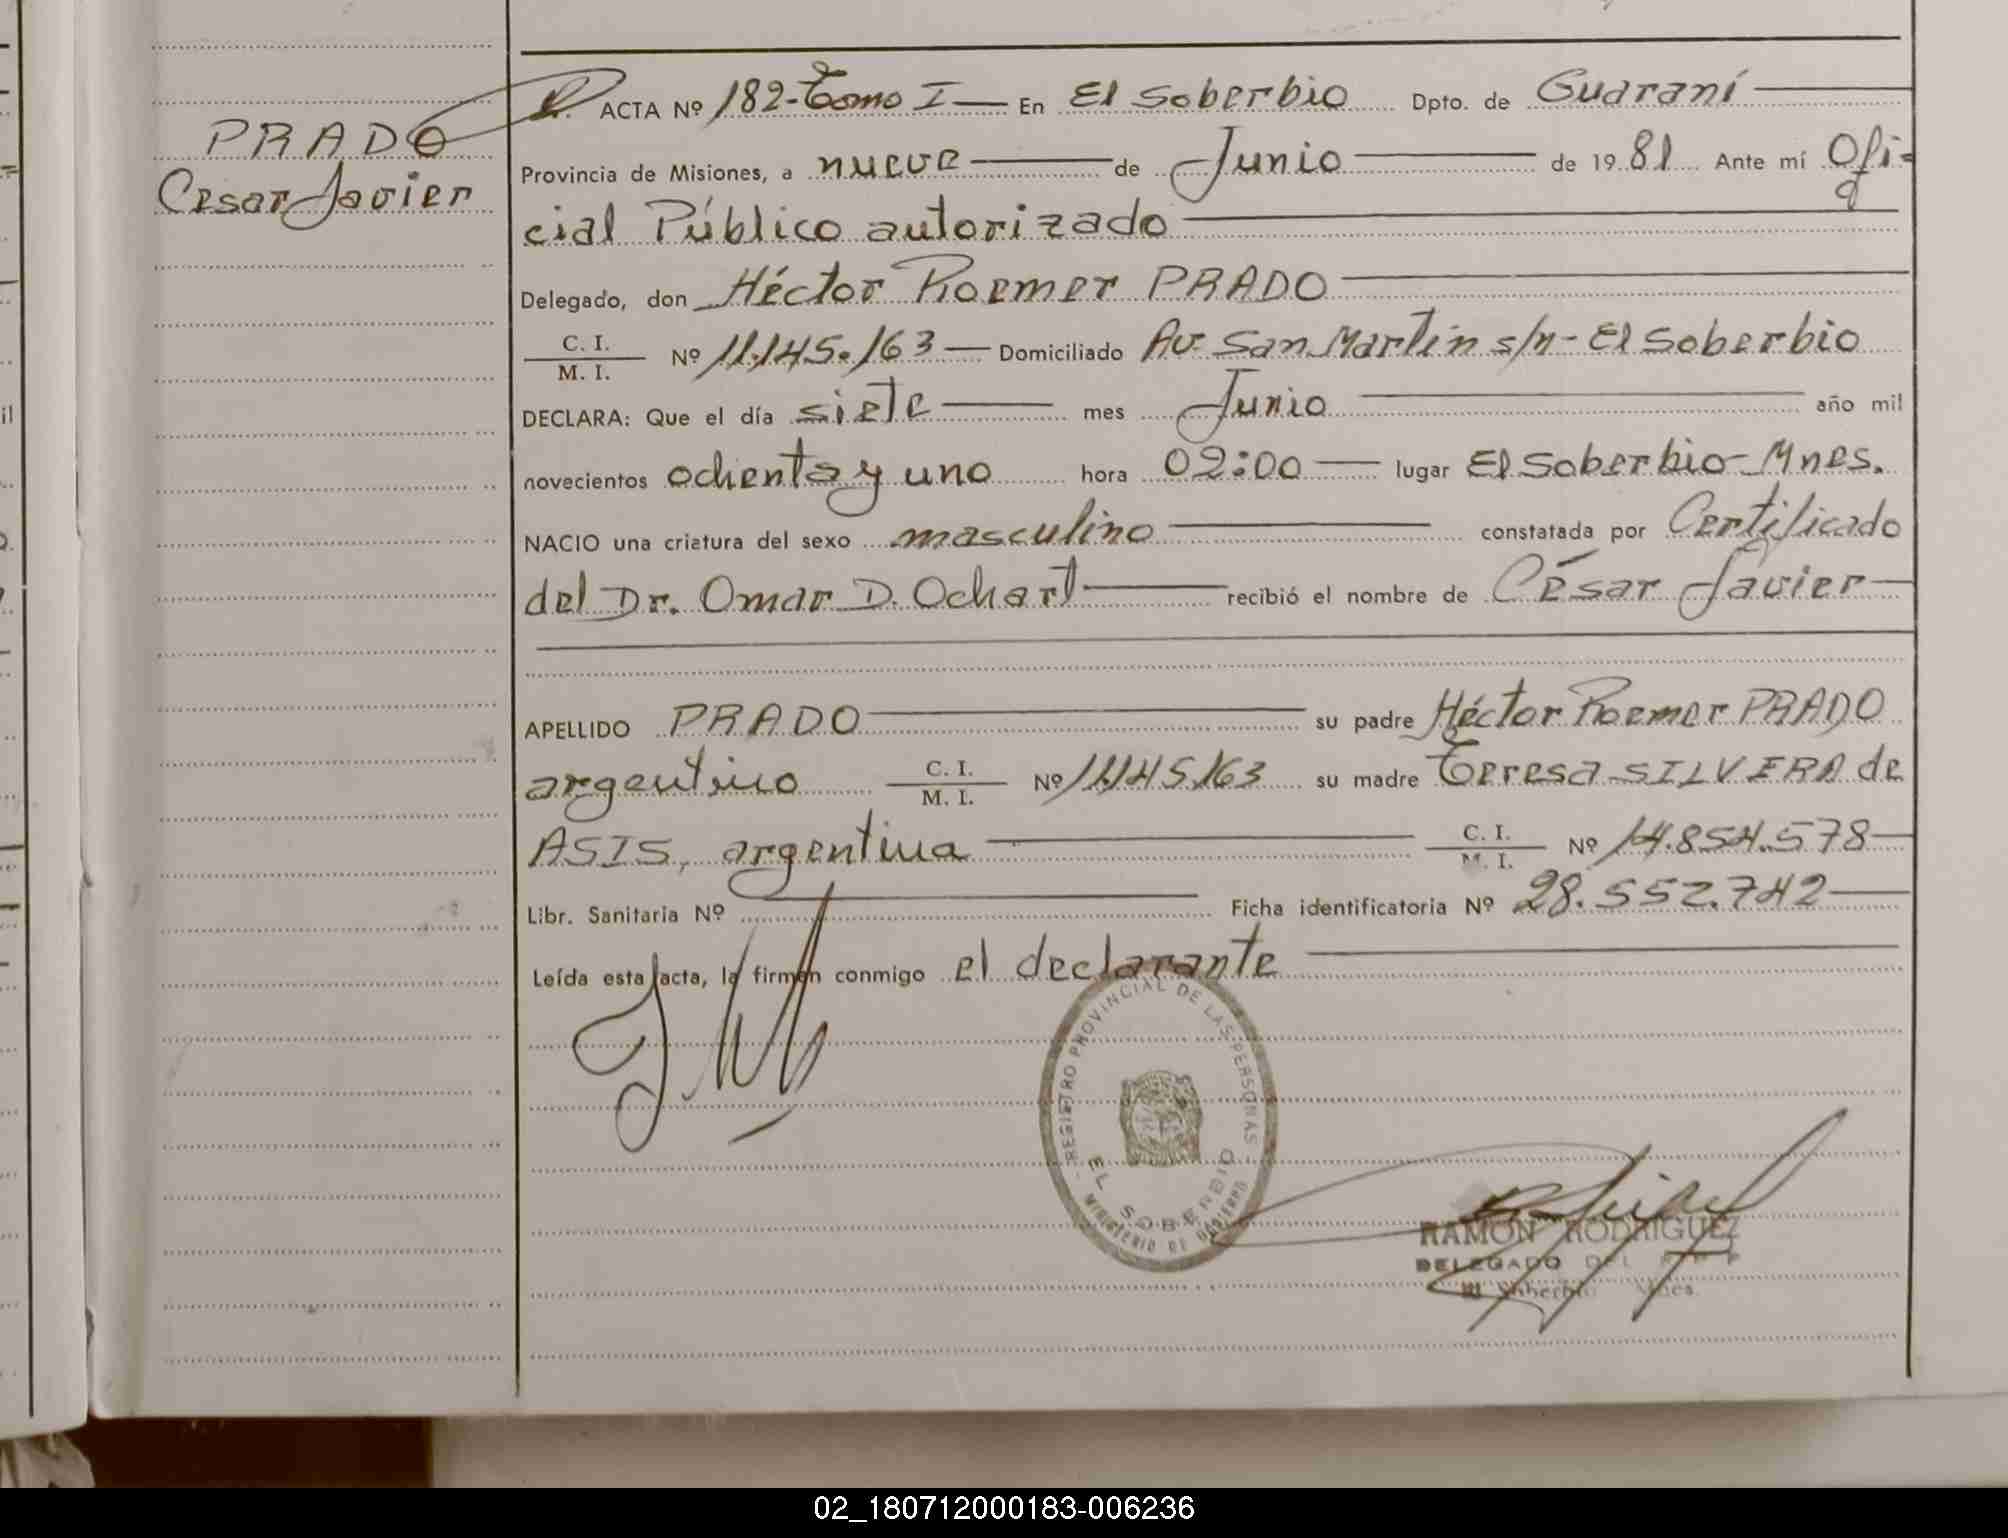 PRADO
Cesar Javier
ACTA Nº 182-Tomo I En El Soberbio Dpto. de Guaraní
Provincia de Misiones, a nueve de Junio de 1981 Ante mí Ofi=
cial Público autorizado
Delegado, don Héctor Roemer PRADO
C. I.
M. I. Nº 11.145.163 Domiciliado Av. San Martín s/n - El Soberbio
DECLARA: Que el día siete mes Junio año mil
novecientos ochenta y uno hora 02:00 lugar El Soberbio - Mnes.
NACIO una criatura del sexo masculino constatada por Certificado
del Dr. Omar D. Ochart recibió el nombre de César Javier
APELLIDO PRADO su padre Héctor Roemer PRADO
argentino C. I.
M. I. Nº 11.145.163 su madre Teresa SILVERA de
ASIS, argentina C. I.
M. I. Nº 14.854.578
Libr. Sanitaria Nº Ficha identificatoria Nº 28.552.742
Leída esta acta, la firman conmigo el declarante
REGISTRO PROVINCIAL DE LAS PERSONAS
EL SOBERBIO
MINISTERIO DE GOBIERNO
RAMON RODRIGUEZ
DELEGADO DEL
El Soberbio Mnes.
02_180712000183-006236